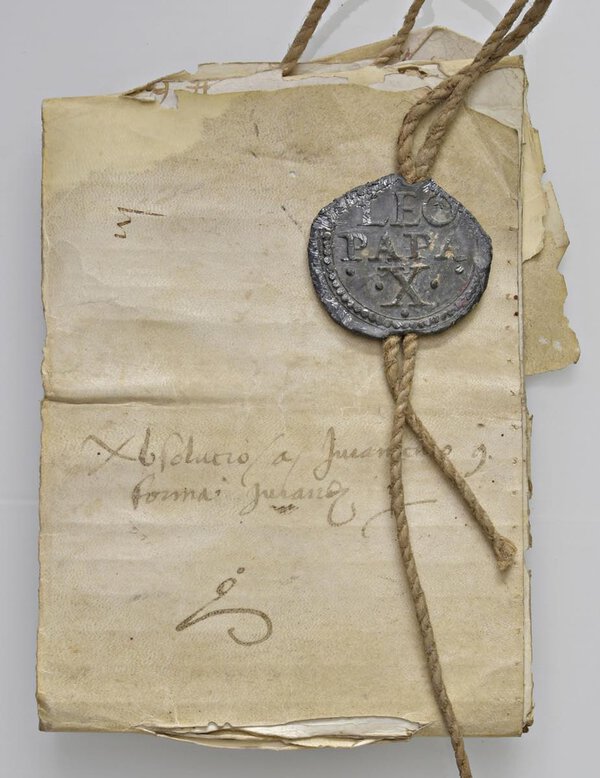 LEO
PAPA
·X·
Absolutio a Juramento
forma Jurand